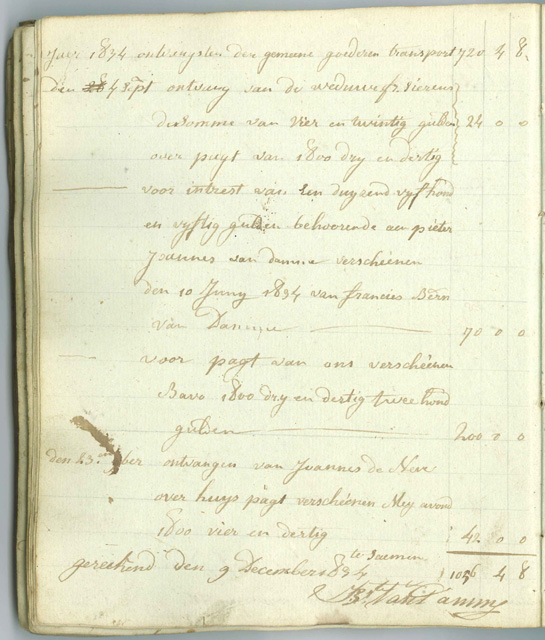 Jaer 1834 ontvangsten der gemeene goederen transport 720 4 8
den 4 Sept ontvang van de weduwe fr. Sierens
de somme van vier en twintig gulden 24 0 0
over pagt van 1800 dry en dertig
voor intrest van Een duyzend vyf hond
en vyftig gulden behoorende aen pieter
Joannes van damme verscheenen
den 10 Juny 1834 van francies Bern
van Damme 70 0 0
voor pagt van ons verscheenen
Bavo 1800 dry en dertig twee hond
gulden 200 0 0
den 23 ber ontvangen van Joannes de Neve
over huys pagt verscheenen Mey avond
1800 vier en dertig 42 0 0
te saemen
gereekend den 9 December 1834 1056 4 8
Van Damme